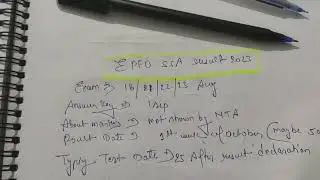 EPFO SSA result 2023
Exam → 18/21/22/23 Aug
Answer key → 1 Sep
About marks → not shown by NTA
Result Date → 1st week of October (maybe
Typing Test Date → 25 After result declaration